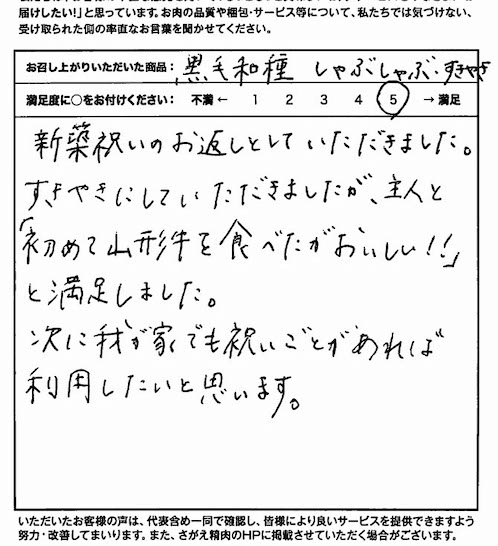 届けしたい!」と思っています。お肉の品質や梱包・サービス等について、私たちでは気づけない、
受け取られた側の率直なお言葉を聞かせてください。
お召し上がりいただいた商品: 黒毛和種 しゃぶしゃぶ・すきやき
満足度に○をお付けください: 不満 ← 1 2 3 4 5 → 満足
新築祝いのお返しとしていただきました。
すきやきにしていただきましたが、主人と
「初めて山形牛を食べたがおいしい!!」
と満足しました。
次に我が家でも祝いごとがあれば
利用したいと思います。
いただいたお客様の声は、代表含め一同で確認し、皆様により良いサービスを提供できますよう
努力・改善してまいります。また、さがえ精肉のHPに掲載させていただく場合がございます。